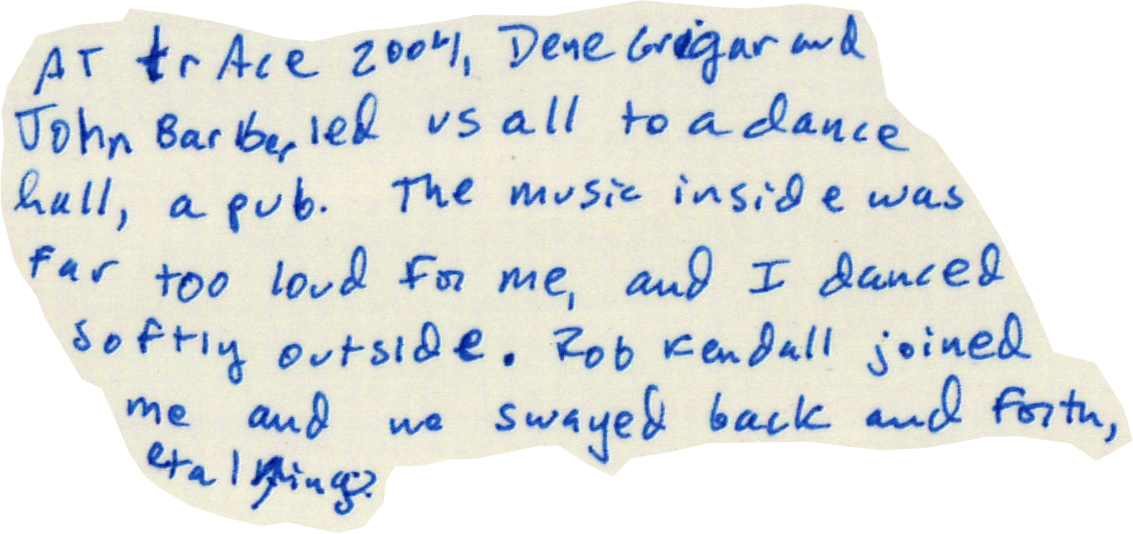 AT trAce 2004, Dene Grigar and
John Barber led us all to a dance
hall, a pub. The music inside was
far too loud for me, and I danced
softly outside. Rob Kendall joined
me and we swayed back and forth,